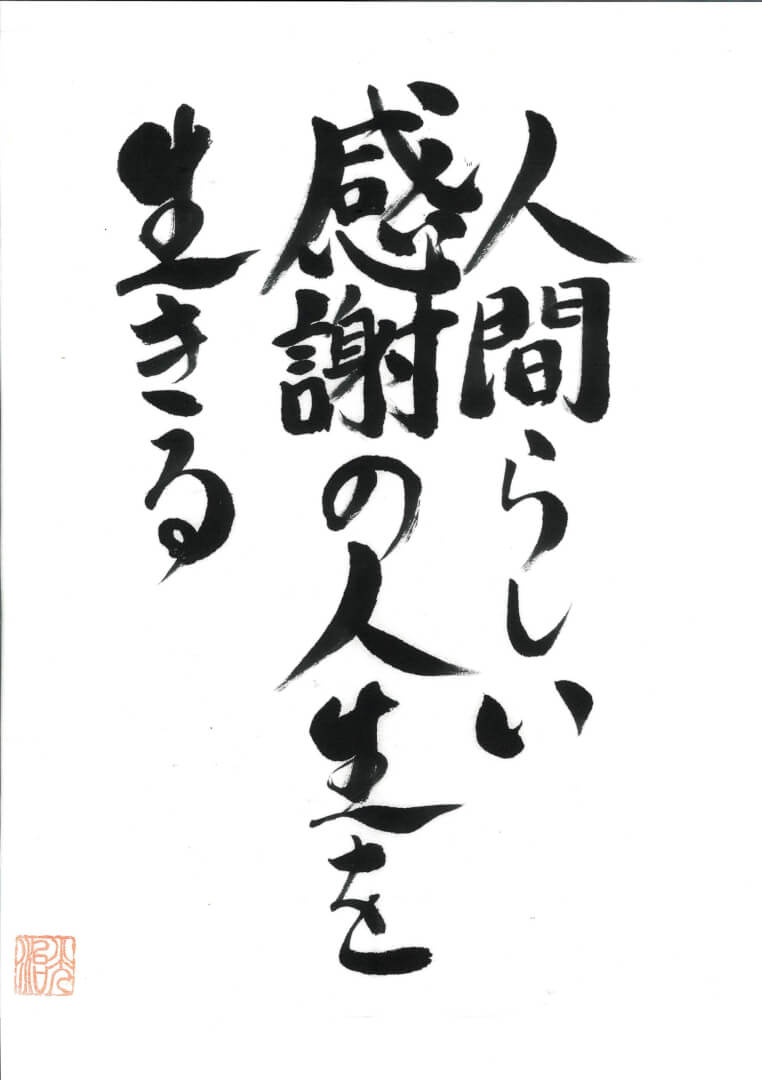 人間らしい
感謝の人生を
生きる